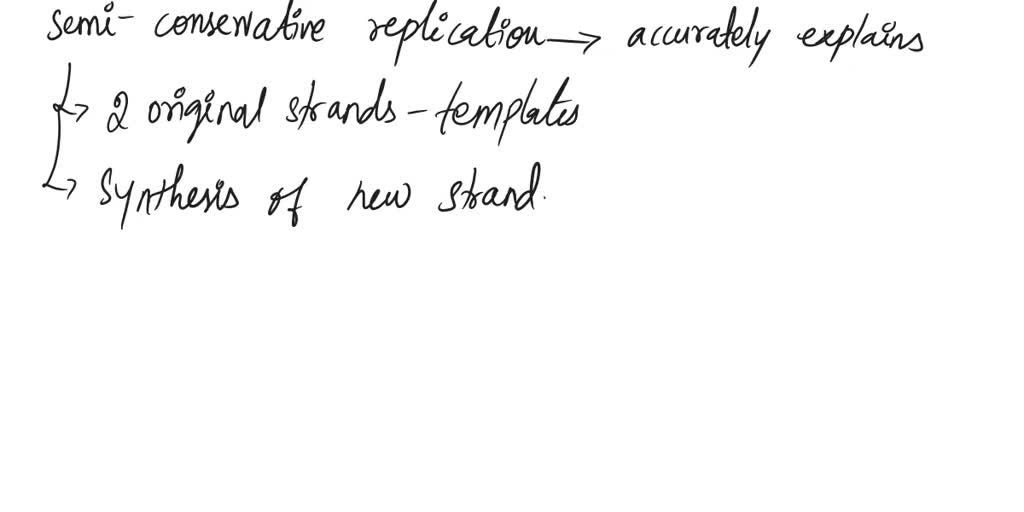 semi-conservative replication → accurately explains
↳ 2 original strands - templates
↳ Synthesis of new strand.